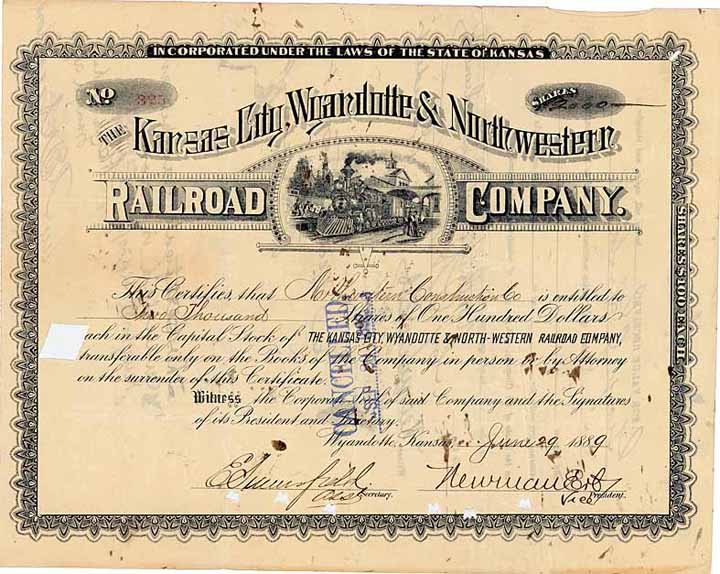 INCORPORATED UNDER THE LAWS OF THE STATE OF KANSAS
No 325
SHARES 2000
THE Kansas City, Wyandotte & Northwestern
RAILROAD COMPANY.
This Certifies, that Northwestern Construction Co is entitled to
Two Thousand Shares of One Hundred Dollars
each in the Capital Stock of THE KANSAS CITY, WYANDOTTE & NORTH-WESTERN RAILROAD COMPANY,
transferable only on the Books of the Company in person or by Attorney
on the surrender of this Certificate.
Witness the Corporate Seal of said Company and the Signatures
of its President and Secretary.
Wyandotte, Kansas, June 29 1889
Secretary.
Newman Erb
Vice President.
SHARES $100 EACH
CANCELLED